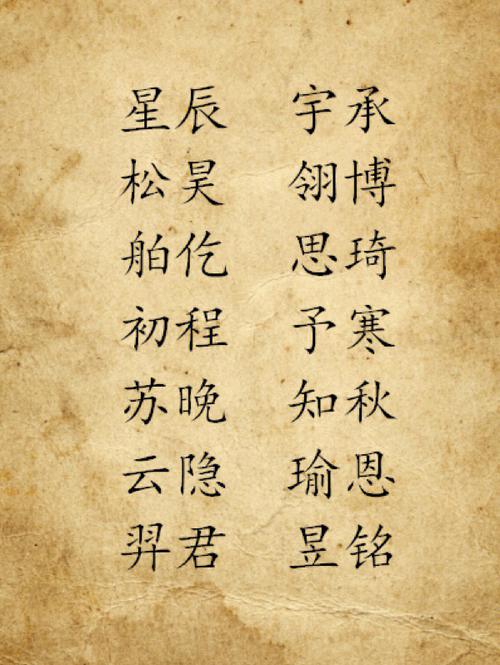 星辰 宇承
松昊 翎博
舶仡 思琦
初程 予寒
苏晚 知秋
云隐 瑜恩
羿君 昱铭